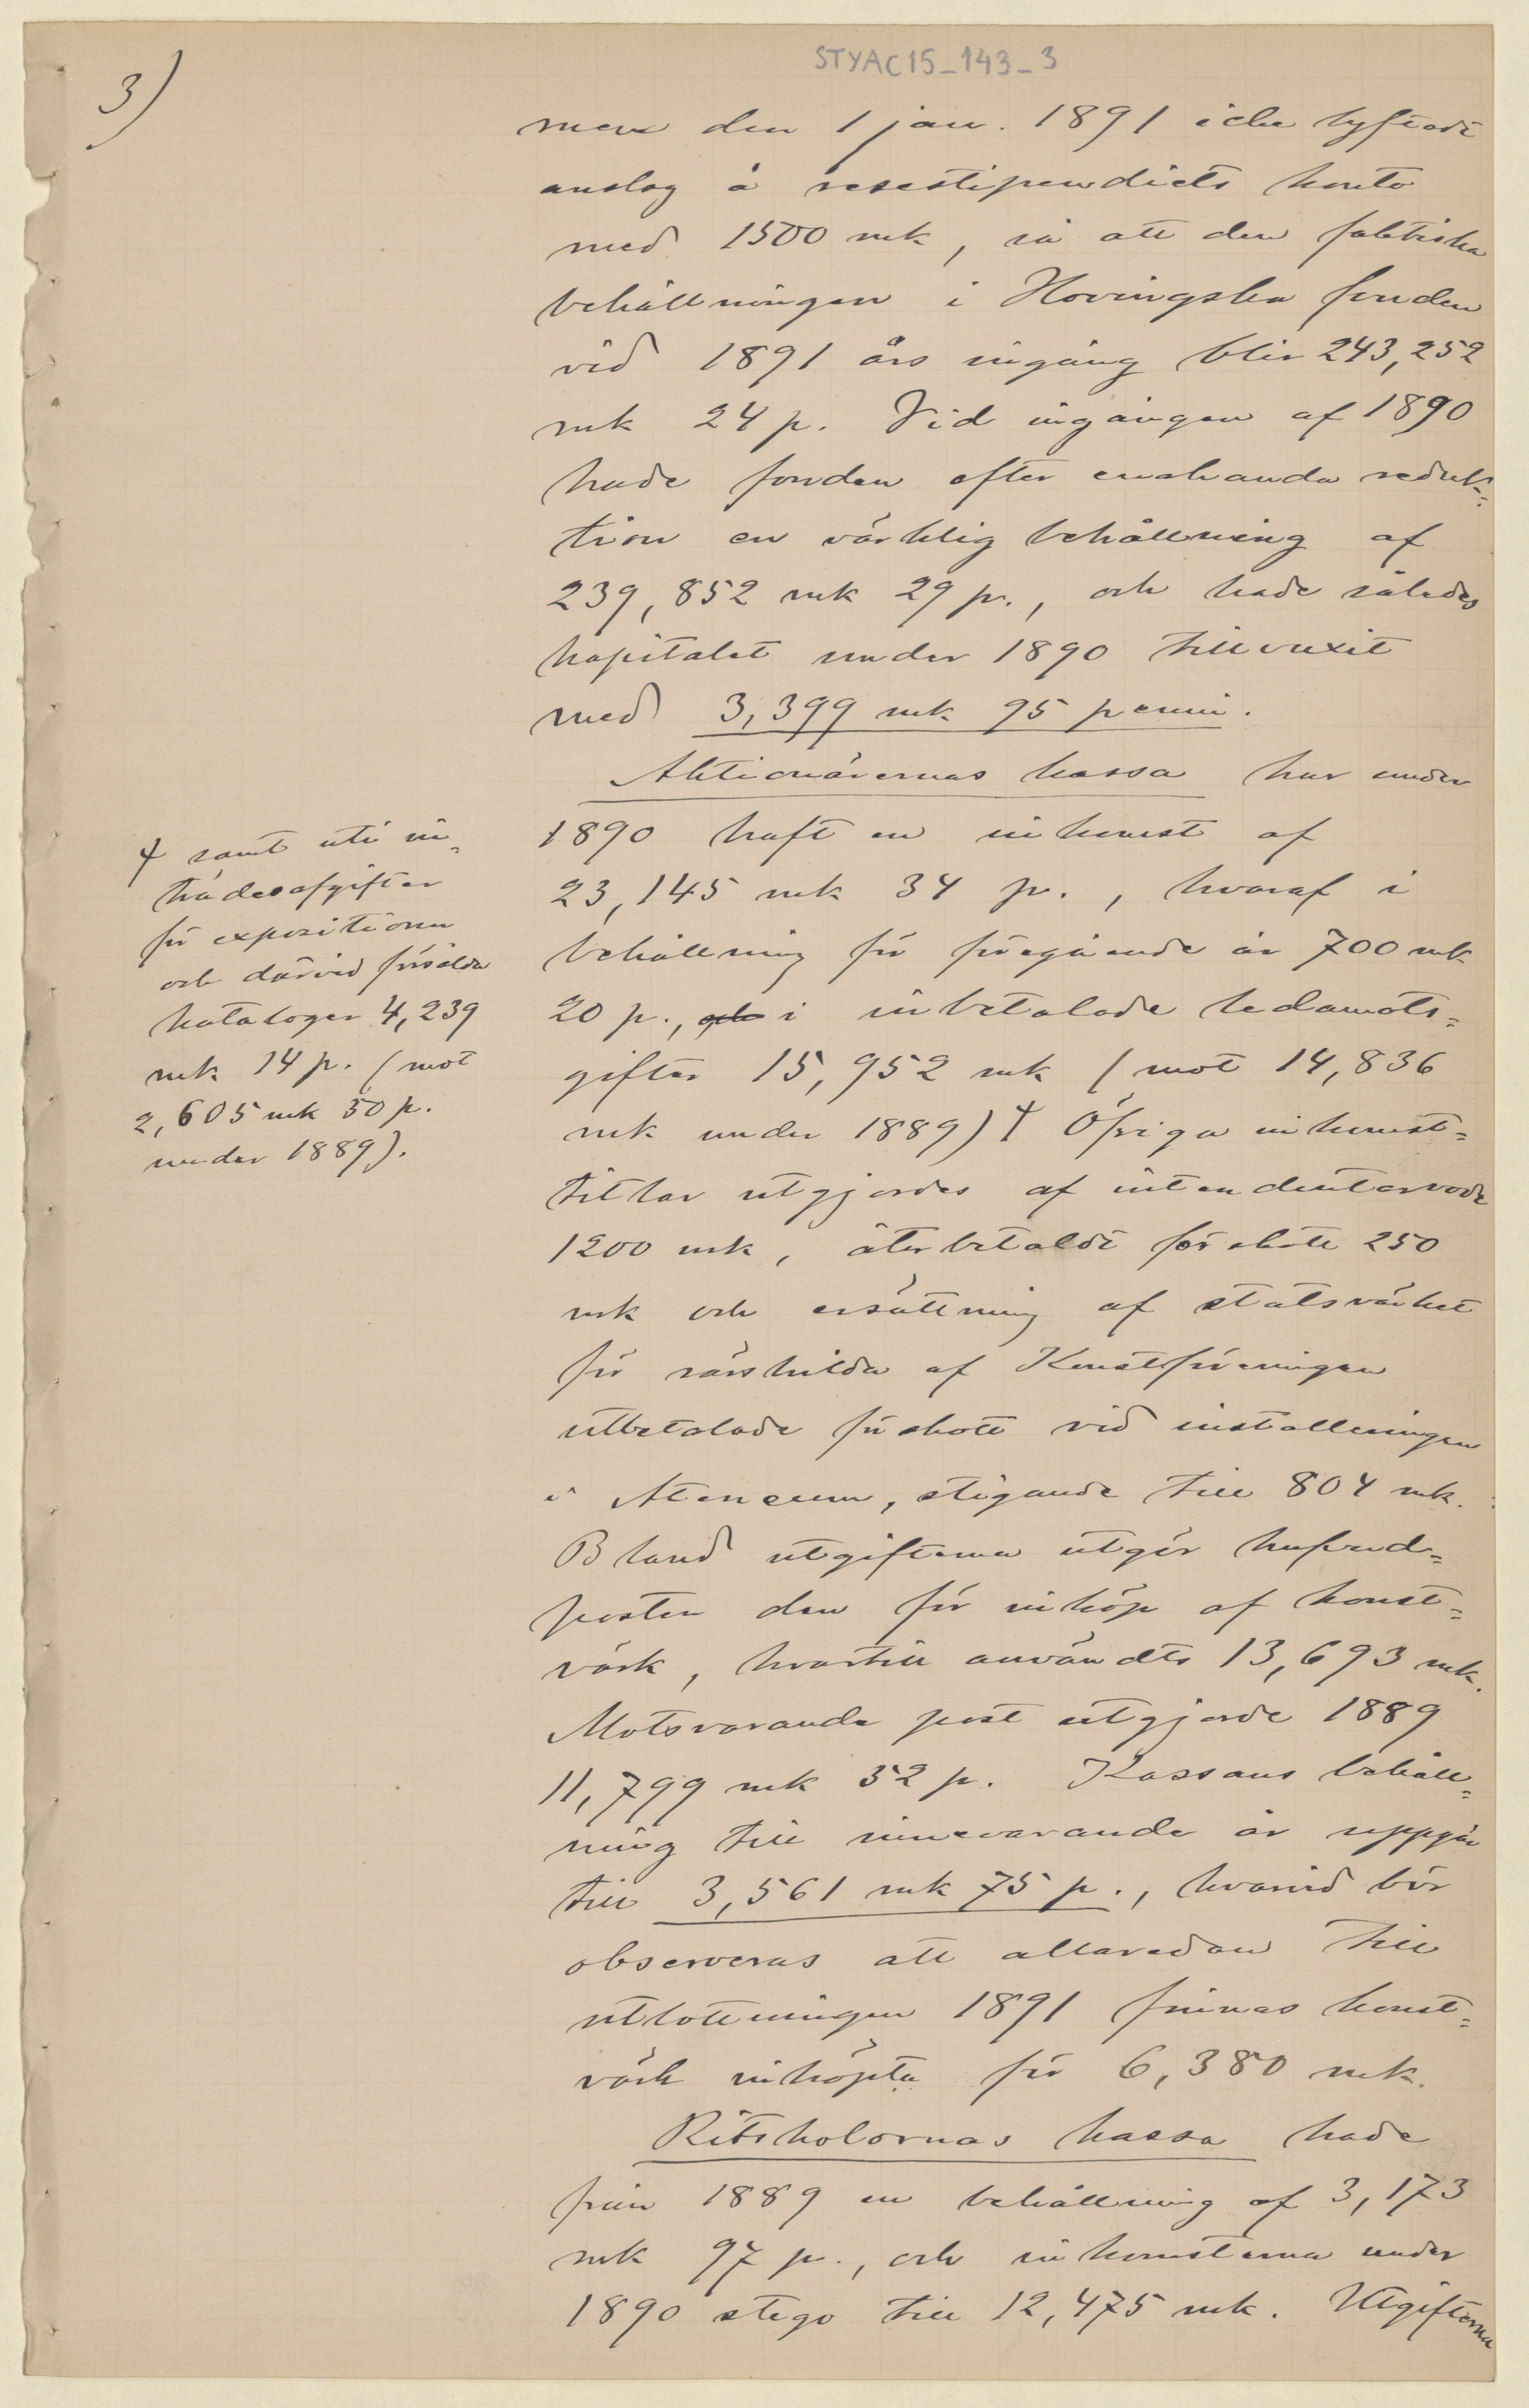 STYAC15_143_3
3)
men den 1 jan. 1891 icke lyftadt
anslag å resestipendiets konto
med 1500 mk, så att den faktiska
behållningen i Hovingska fonden
vid 1891 års ingång blir 243,252
mk 24 p. Vid ingången af 1890
hade fonden efter enahanda reduk=
tion en värklig behållning af
239,852 mk 29 p., och hade således
kapitalet under 1890 tillvuxit
med 3,399 mk 95 penni.
Aktionärernas kassa har under
1890 haft en inkomst af
23,145 mk 34 p., hvaraf i
behållning för föregående år 700 mk
20 p., och i inbetalade ledamots=
gifter 15,952 mk (mot 14,836
mk under 1889) † Öfriga inkomst=
titlar utgjordes af intendentarvode
1200 mk, återbetaldt förskott 250
mk och ersättning af statsvärket
för särskilda af Konstföreningen
utbetalade förskott vid installeringen
i Ateneum, stigande till 804 mk.
Bland utgifterna utgör hufvud=
posten den för inköp af konst=
värk, hvartill användts 13,693 mk.
Motsvarande post utgjorde 1889
11,799 mk 32 p. Kassans behåll=
ning till innevarande år uppgår
till 3,561 mk 75 p., hvarvid bör
observeras att allaredan till
utlottningen 1891 finnas konst=
värk inköpta för 6,380 mk.
Ritskolornas kassa hade
från 1889 en behållning af 3,173
mk 97 p., och inkomsterna under
1890 stego till 12,475 mk. Utgifterna
† samt uti in=
trädesafgifter
för expositionen
och därvid försålda
kataloger 4,239
mk 14 p. (mot
2,605 mk 50 p.
under 1889).